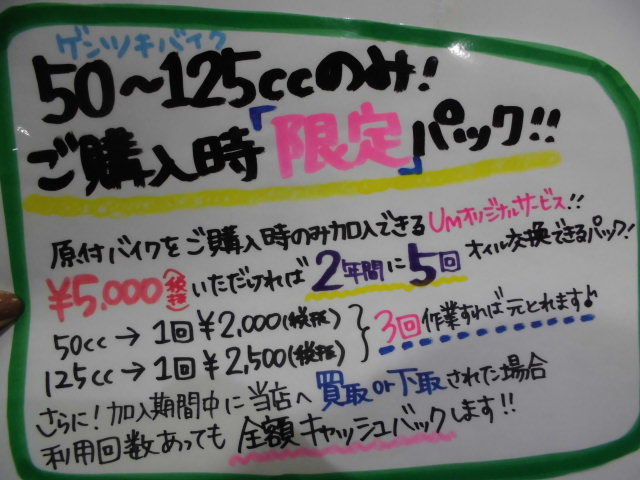 ゲンツキバイク
50～125ccのみ!
ご購入時「限定」パック!!
原付バイクをご購入時のみ加入できるUMオリジナルサービス!!
¥5,000(税抜)いただければ2年間に5回オイル交換できるパック!
50cc→1回¥2,000(税抜)
125cc→1回¥2,500(税抜)
3回作業すれば元とれます♪
さらに!加入期間中に当店へ買取or下取された場合
利用回数あっても全額キャッシュバックします!!